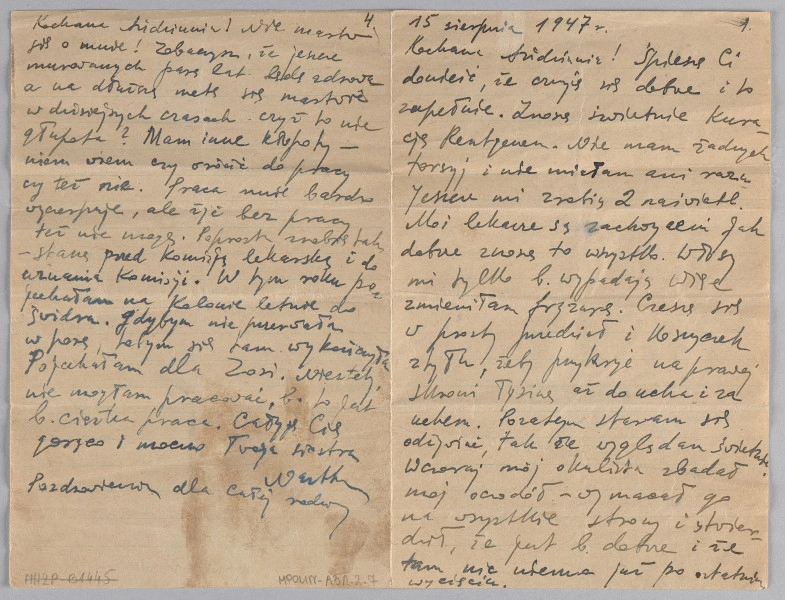 15 sierpnia 1947 r. 1.
Kochana Siedziunia! Spieszę Ci
donieść, że czuję się dobrze i to
zupełnie. Znoszę świetnie Kura-
cję Rentgenem. Nie mam żadnych
torsyj i nie miałam ani razu
Jeszcze mi zrobią 2 naświetl.
Moi lekarze są zachwyceni Jak
dobrze znoszę to wszystko. Włosy
mi tylko b. wypadają więc
zmieniłam fryzurę. Czeszę się
w prosty przedział i Koszyczek
z tyłu, żeby przykryć na prawej
stronie łysinę aż do ucha i za
uchem. Pozatem staram się
odżywiać, tak że wyglądam świetnie.
Wczoraj mój okulista zbadał
mój oczodół - wymacał go
na wszystkie strony i stwier-
dził, że jest b. dobrze i że
tam nic niema już po ostatnim
wycięciu.
4.
Kochana Siedziunia! Nie martw
się o mnie! Zobaczysz, że jeszcze
murowanych parę lat będę zdrowa
a na dłuższą metę się martwić
w dzisiejszych czasach czyż to nie
głupota? Mam inne kłopoty -
niem wiem czy wrócić do pracy
czy też nie. Praca mnie bardzo
wyczerpuje, ale żyć bez pracy
też nie mogę. Poprostu zrobię tak
- stanę przed Komisją lekarską i do
uznania Komisji. W tym roku po-
jechałam na Kolonie letnie do
Świdra. Gdybym nie przerwała
w porę, tobym się tam wykończyła
Pojechałam dla Zosi. Niestety
nie mogłam pracować, b. to jest
b. ciężka praca. Całuję Cię
gorąco i mocno Twoja siostra
Pozdrowienia dla całej rodziny
MHŻP-B1445
MPOLIN-A3Л-2-7